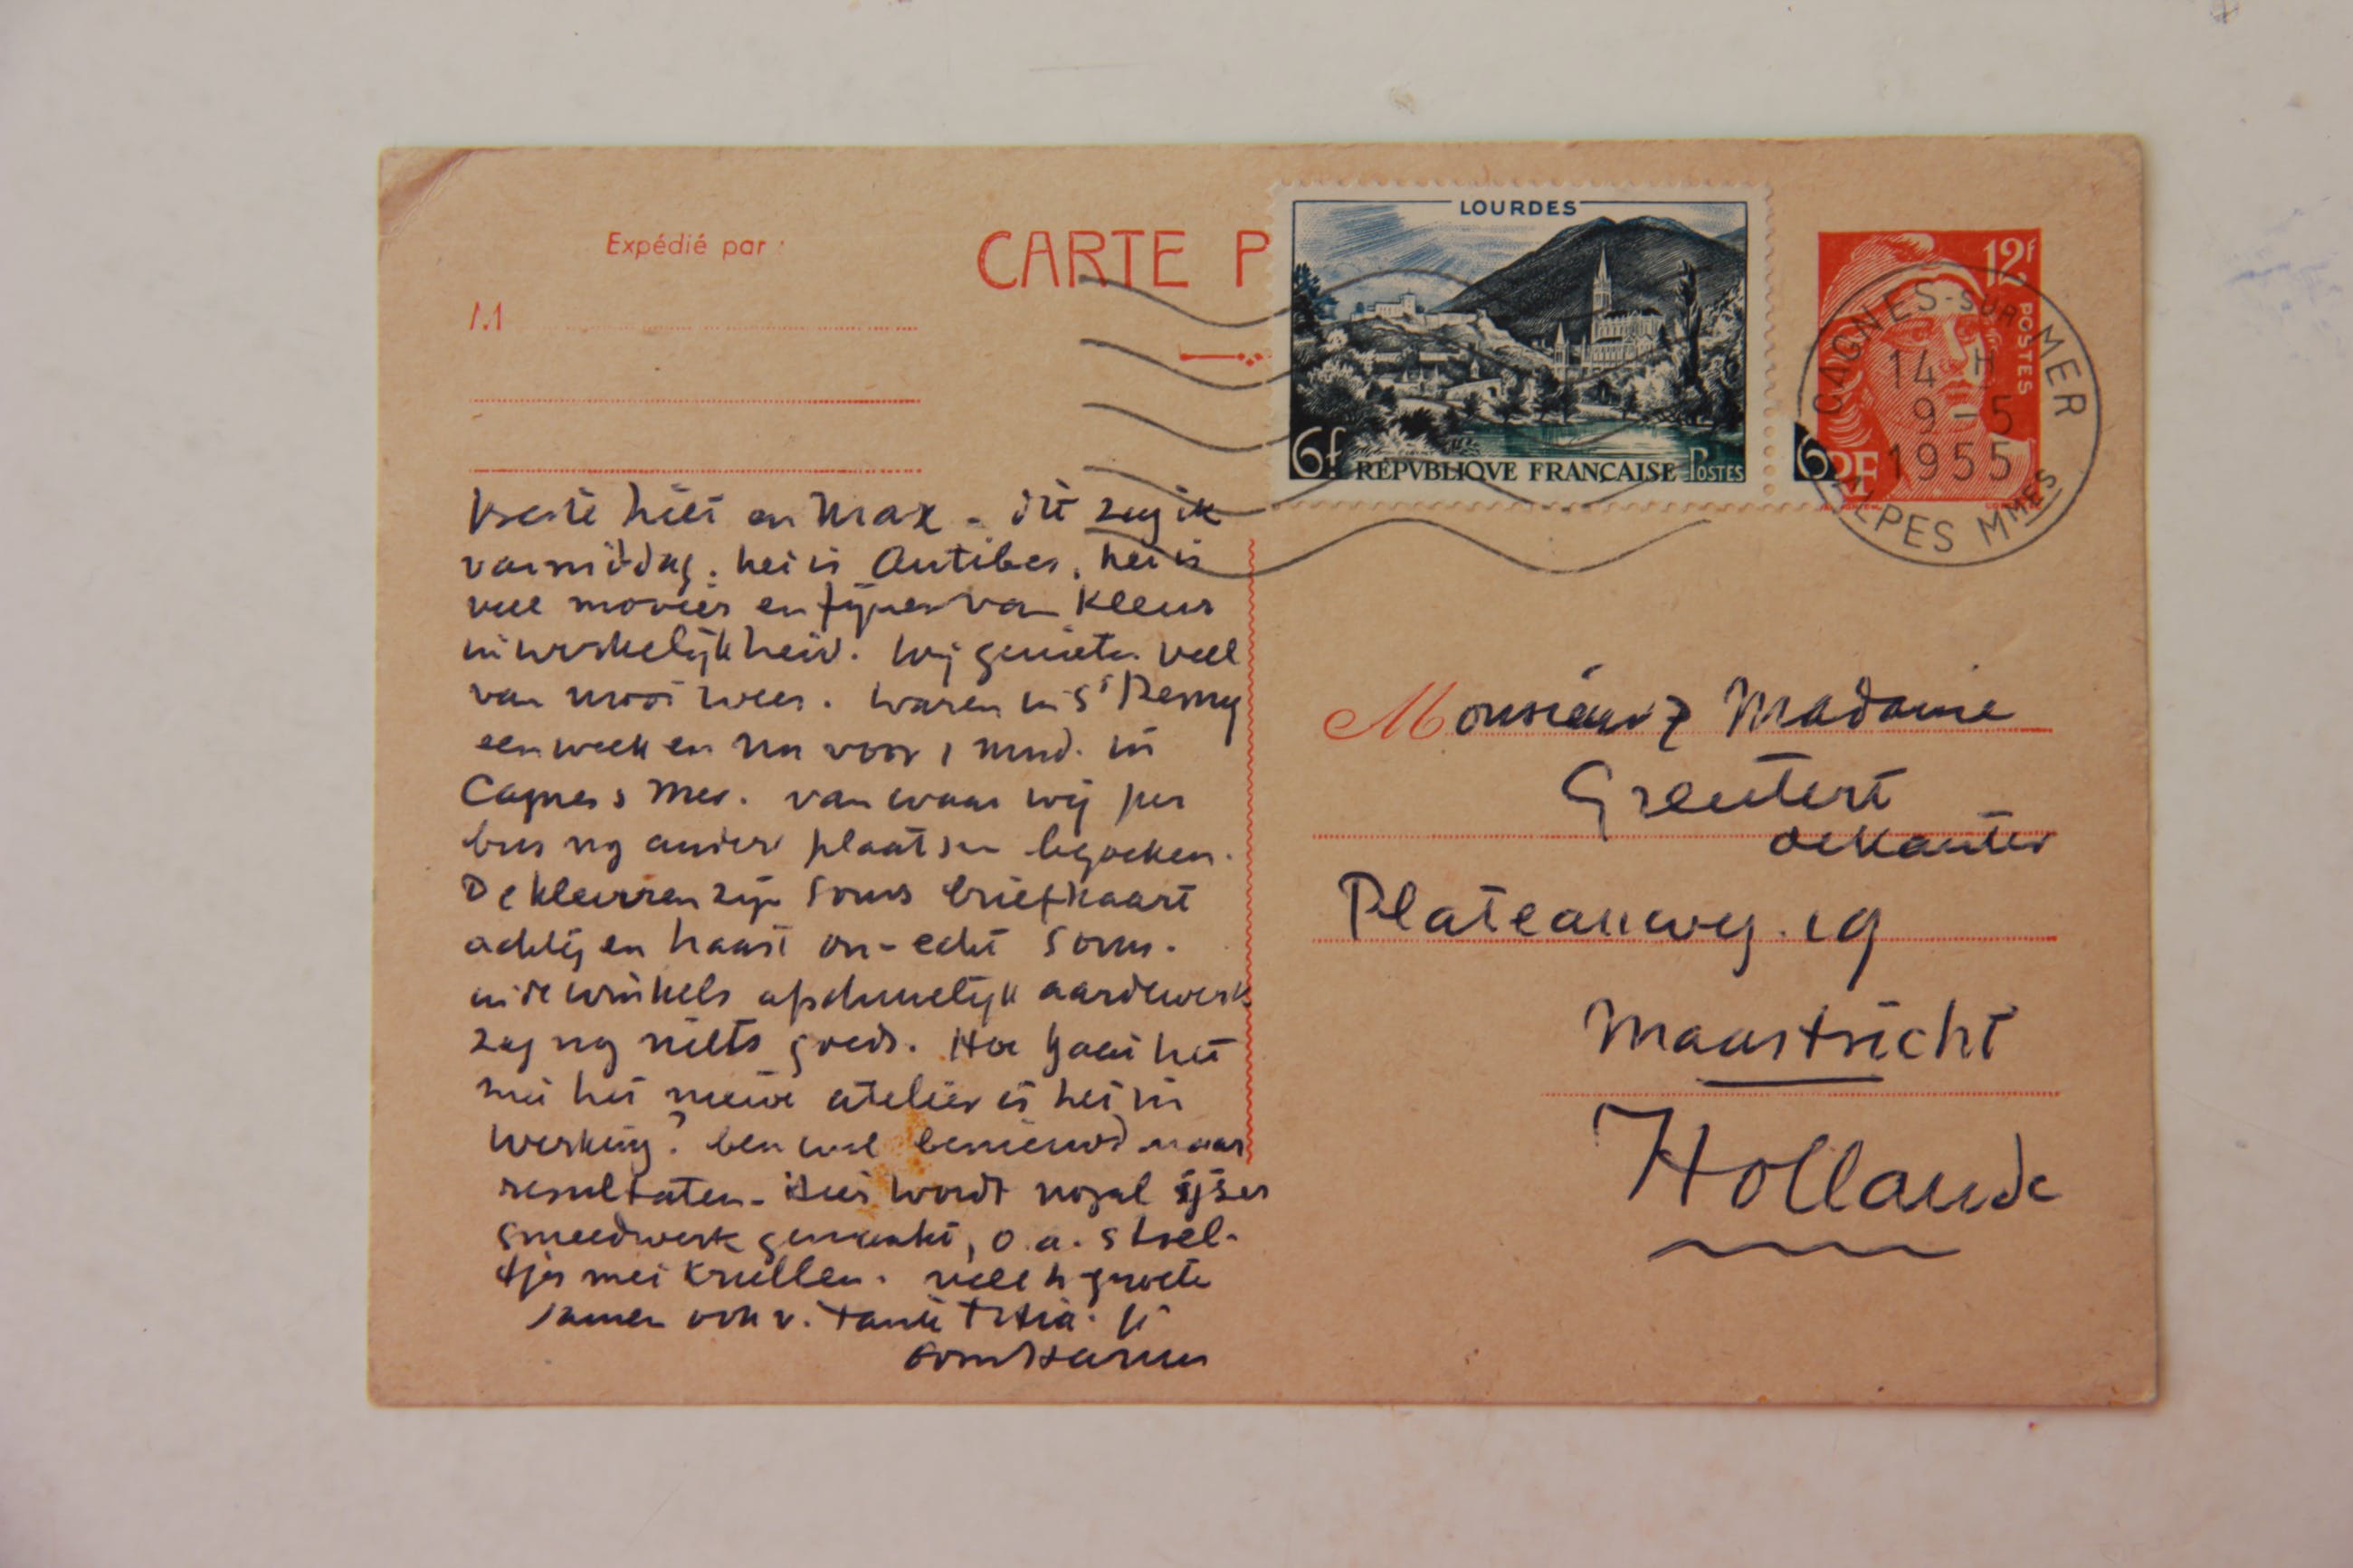 Expédié par :
M
CARTE P
LOURDES
6f RÉPVBLIQVE FRANÇAISE POSTES
12f
POSTES
6
RF
CAGNES-SUR-MER
14 H
9-5
1955
ALPES MMES
Beste Piet en Max - dit zag ik
vanmiddag. het is Antibes, het is
veel mooier en fijner van kleur
in werkelijkheid. Wij genieten veel
van mooi weer. Waren in St Remy
een week en nu voor 1 mnd. in
Cagnes s Mer. van waar wij per
bus ng ander plaatsen bezoeken.
De kleuren zijn soms briefkaart
achtig en haast on-echt soms.
in de winkels afschuwelijk aardewerk
zag ng niets goeds. Hoe gaat het
met het nieuwe atelier is het in
werking? ben wel benieuwd naar
resultaten - Hier wordt nogal ijzer
smeedwerk gemaakt, o.a. stoel-
tjes met krullen. veel h groete
samen ook v. tante Titia.
oom Harm
Monsieur & Madame
Greutert
de Kanter
Plateauweg. 19
Maastricht
Hollande